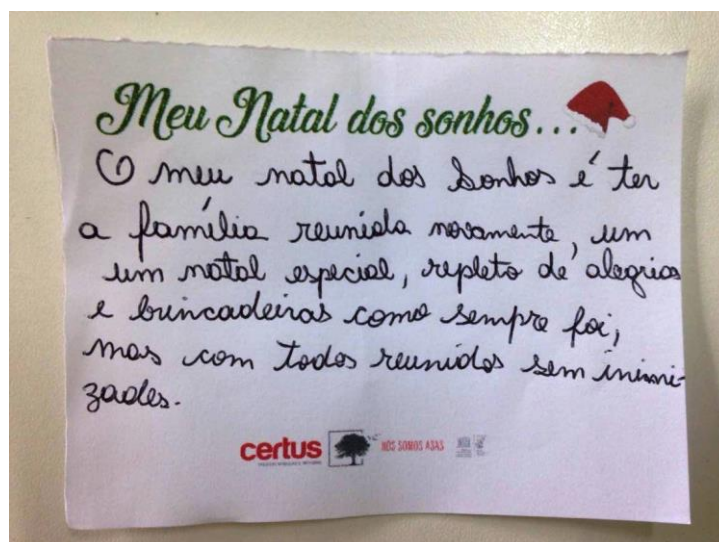 Meu Natal dos sonhos...
O meu natal dos sonhos é ter
a família reunida novamente, um
um natal especial, repleto de alegrias
e brincadeiras como sempre foi,
mas com todos reunidos sem inimi-
zades.
certus
NÓS SOMOS ASAS